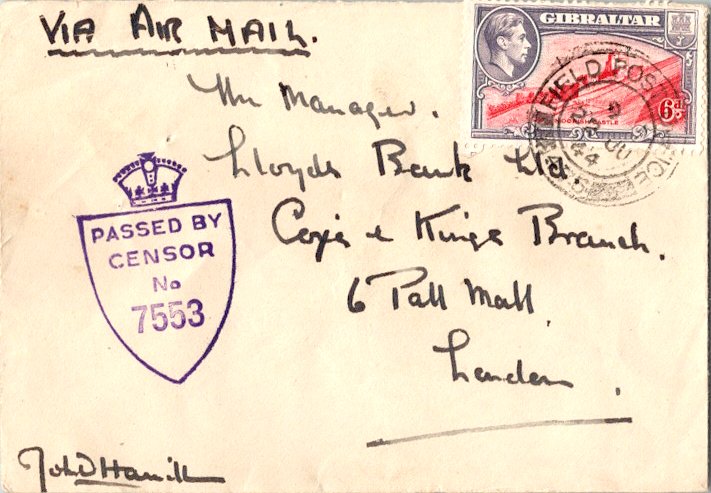 VIA AIR MAIL.
GIBRALTAR
6d
MOORISH CASTLE
FIELD POST OFFICE
44
The Manager.
Lloyds Bank Ltd.
Cox's & Kings Branch.
6 Pall Mall
London.
PASSED BY
CENSOR
No
7553